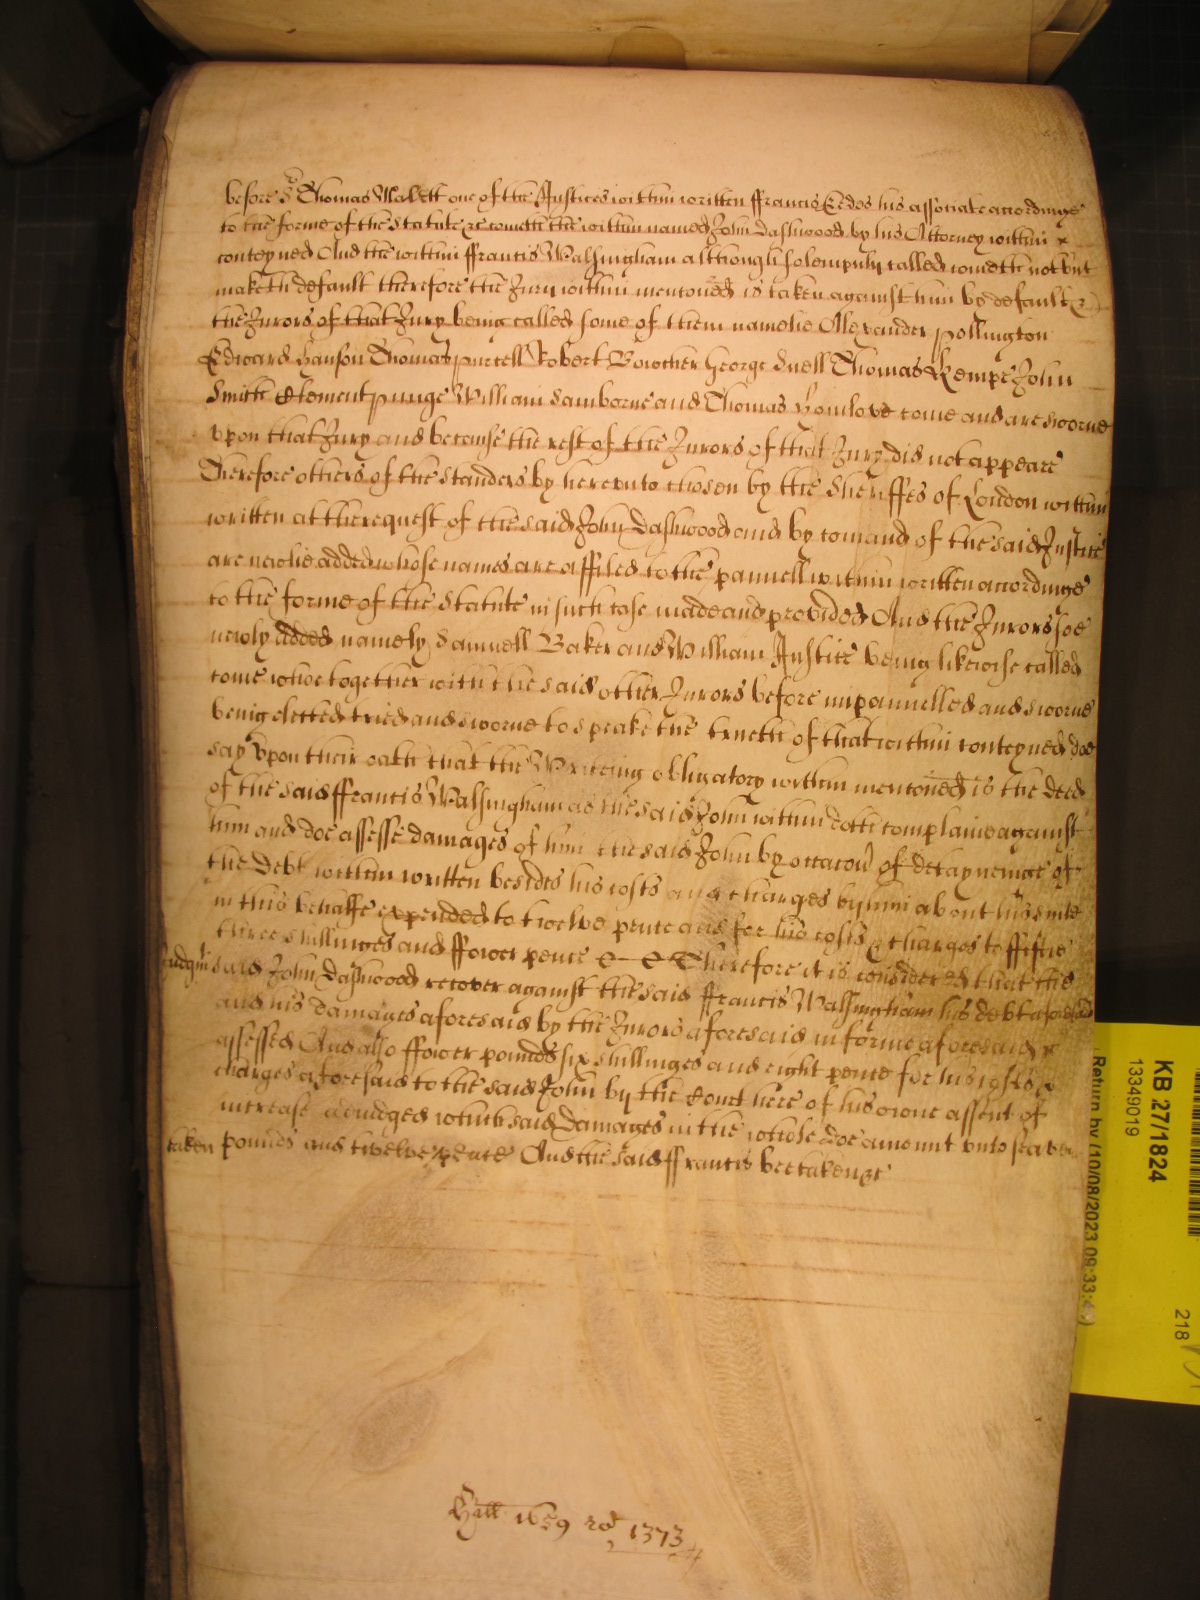 before Sr Thomas Malett one of the Justices within written ffrancis Eedes his associate accordinge
to the forme of the Statute &c cometh the within named John Dashwood by his Attorney within
conteyned And the within ffrancis Walsingham although solempnly called cometh not but
maketh default therefore the Jury within mentoned is taken against him by default &
the Jurors of that Jury being called some of them namelie Alexander Pollington
Edward Hanson Thomas Purcell Robert Bowcher George Snell Thomas Kempe John
Smith Clement Punge William Samborne and Thomas come and are sworne
vpon that Jury and because the rest of the Jurors of that Jury did not appeare
Therefore others of the Standers by herevnto chosen by the Sheriffes of London within
written at the request of the said John Dashwood and by comand of the said Justice
are newlie added whose names are affiled to the pannell within written accordinge
to the forme of the Statute in such case made and provided And the Jurors soe
newly added namely Samuell Baker and William Justice being likewise called
come who together with the said other Jurors before impannelled and sworne
being elected tried and sworne to speake the trueth of that within conteyned doe
say vpon their oath that the Writeing obligatory within mentoned is the deed
of the said ffrancis Walsingham as the said John within doth complaine against
him and doe assesse damages of him the said John by occacon of detayneinge of
the Debt within written besides his costs and charges by him about his suite
in this behalfe expended to twelve pence and for his costs & charges to fiftie
three shillinges and ffower pence Therefore it is considered that the
Judgmt said John Dashwood recover against the said ffrancis Walsingham his debt aforesaid
and his damages aforesaid by the Jurors aforesaid in forme aforesaid
assessed And also ffower pounds six shillinges and eight pence for his costs &
charges aforesaid to the said John by the Court here of his owne assent of
increase adiudged which said Damages in the whole doe amount vnto seaven
taken pounds and twelve pence And the said ffrancis bee taken &c
Hill 1659 ro 1373
KB 27/1824
13349019
Return by (10/08/2023 09:33:4
218